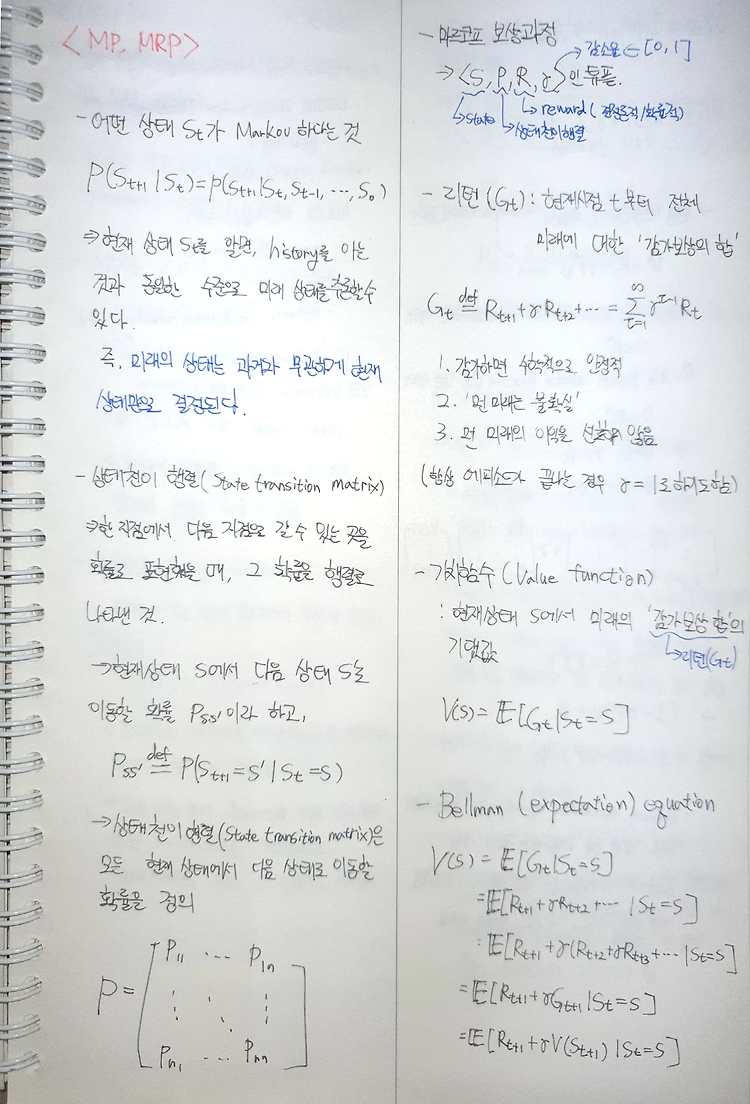 <MP, MRP>
- 어떤 상태 St가 Markov 하다는 것
P(St+1 | St) = P(St+1 | St, St-1, ..., S0)
⇒ 현재 상태 St를 알면, history를 아는
것과 동일한 수준으로 미래 상태를 추론할 수
있다.
즉, 미래의 상태는 과거와 무관하게 현재
상태만으로 결정된다.
- 상태천이 행렬 (State transition matrix)
⇒ 한 지점에서 다음 지점으로 갈 수 있는 곳을
확률로 표현했을 때, 그 확률을 행렬로
나타낸 것.
→ 현재상태 S에서 다음 상태 S'로
이동할 확률 Pss' 이라 하고,
Pss' def= P(St+1 = S' | St = S)
→ 상태천이 행렬(State transition matrix)은
모든 현재 상태에서 다음 상태로 이동할
확률을 정의
P = [ P11 ... P1n
Pn1 ... Pnn ]
- 마르코프 보상과정
→ 감소율 ∈ [0, 1]
→ <S, P, R, γ> 인 튜플.
→ reward (결정론적/확률적)
→ state → 상태천이행렬
- 리턴 (Gt) : 현재시점 t부터 전체
미래에 대한 '감가보상의 합'
Gt def= Rt+1 + γRt+2 + ... = ∞Σt=1 γ^t-1 Rt
1. 감가하면 수학적으로 안정적
2. '먼 미래는 불확실'
3. 먼 미래의 이익을 선호하지 않음
(항상 에피소드가 끝나는 경우 γ = 1로 하기도 함)
- 가치함수 (Value function)
: 현재상태 S에서 미래의 '감가보상 합'의
기댓값 → 리턴(Gt)
V(S) = E[Gt | St = S]
- Bellman (expectation) equation
V(S) = E[Gt | St = S]
= E[Rt+1 + γRt+2 + ... | St = S]
= E[Rt+1 + γ(Rt+2 + γRt+3 + ... | St = S]
= E[Rt+1 + γGt+1 | St = S]
= E[Rt+1 + γV(St+1) | St = S]